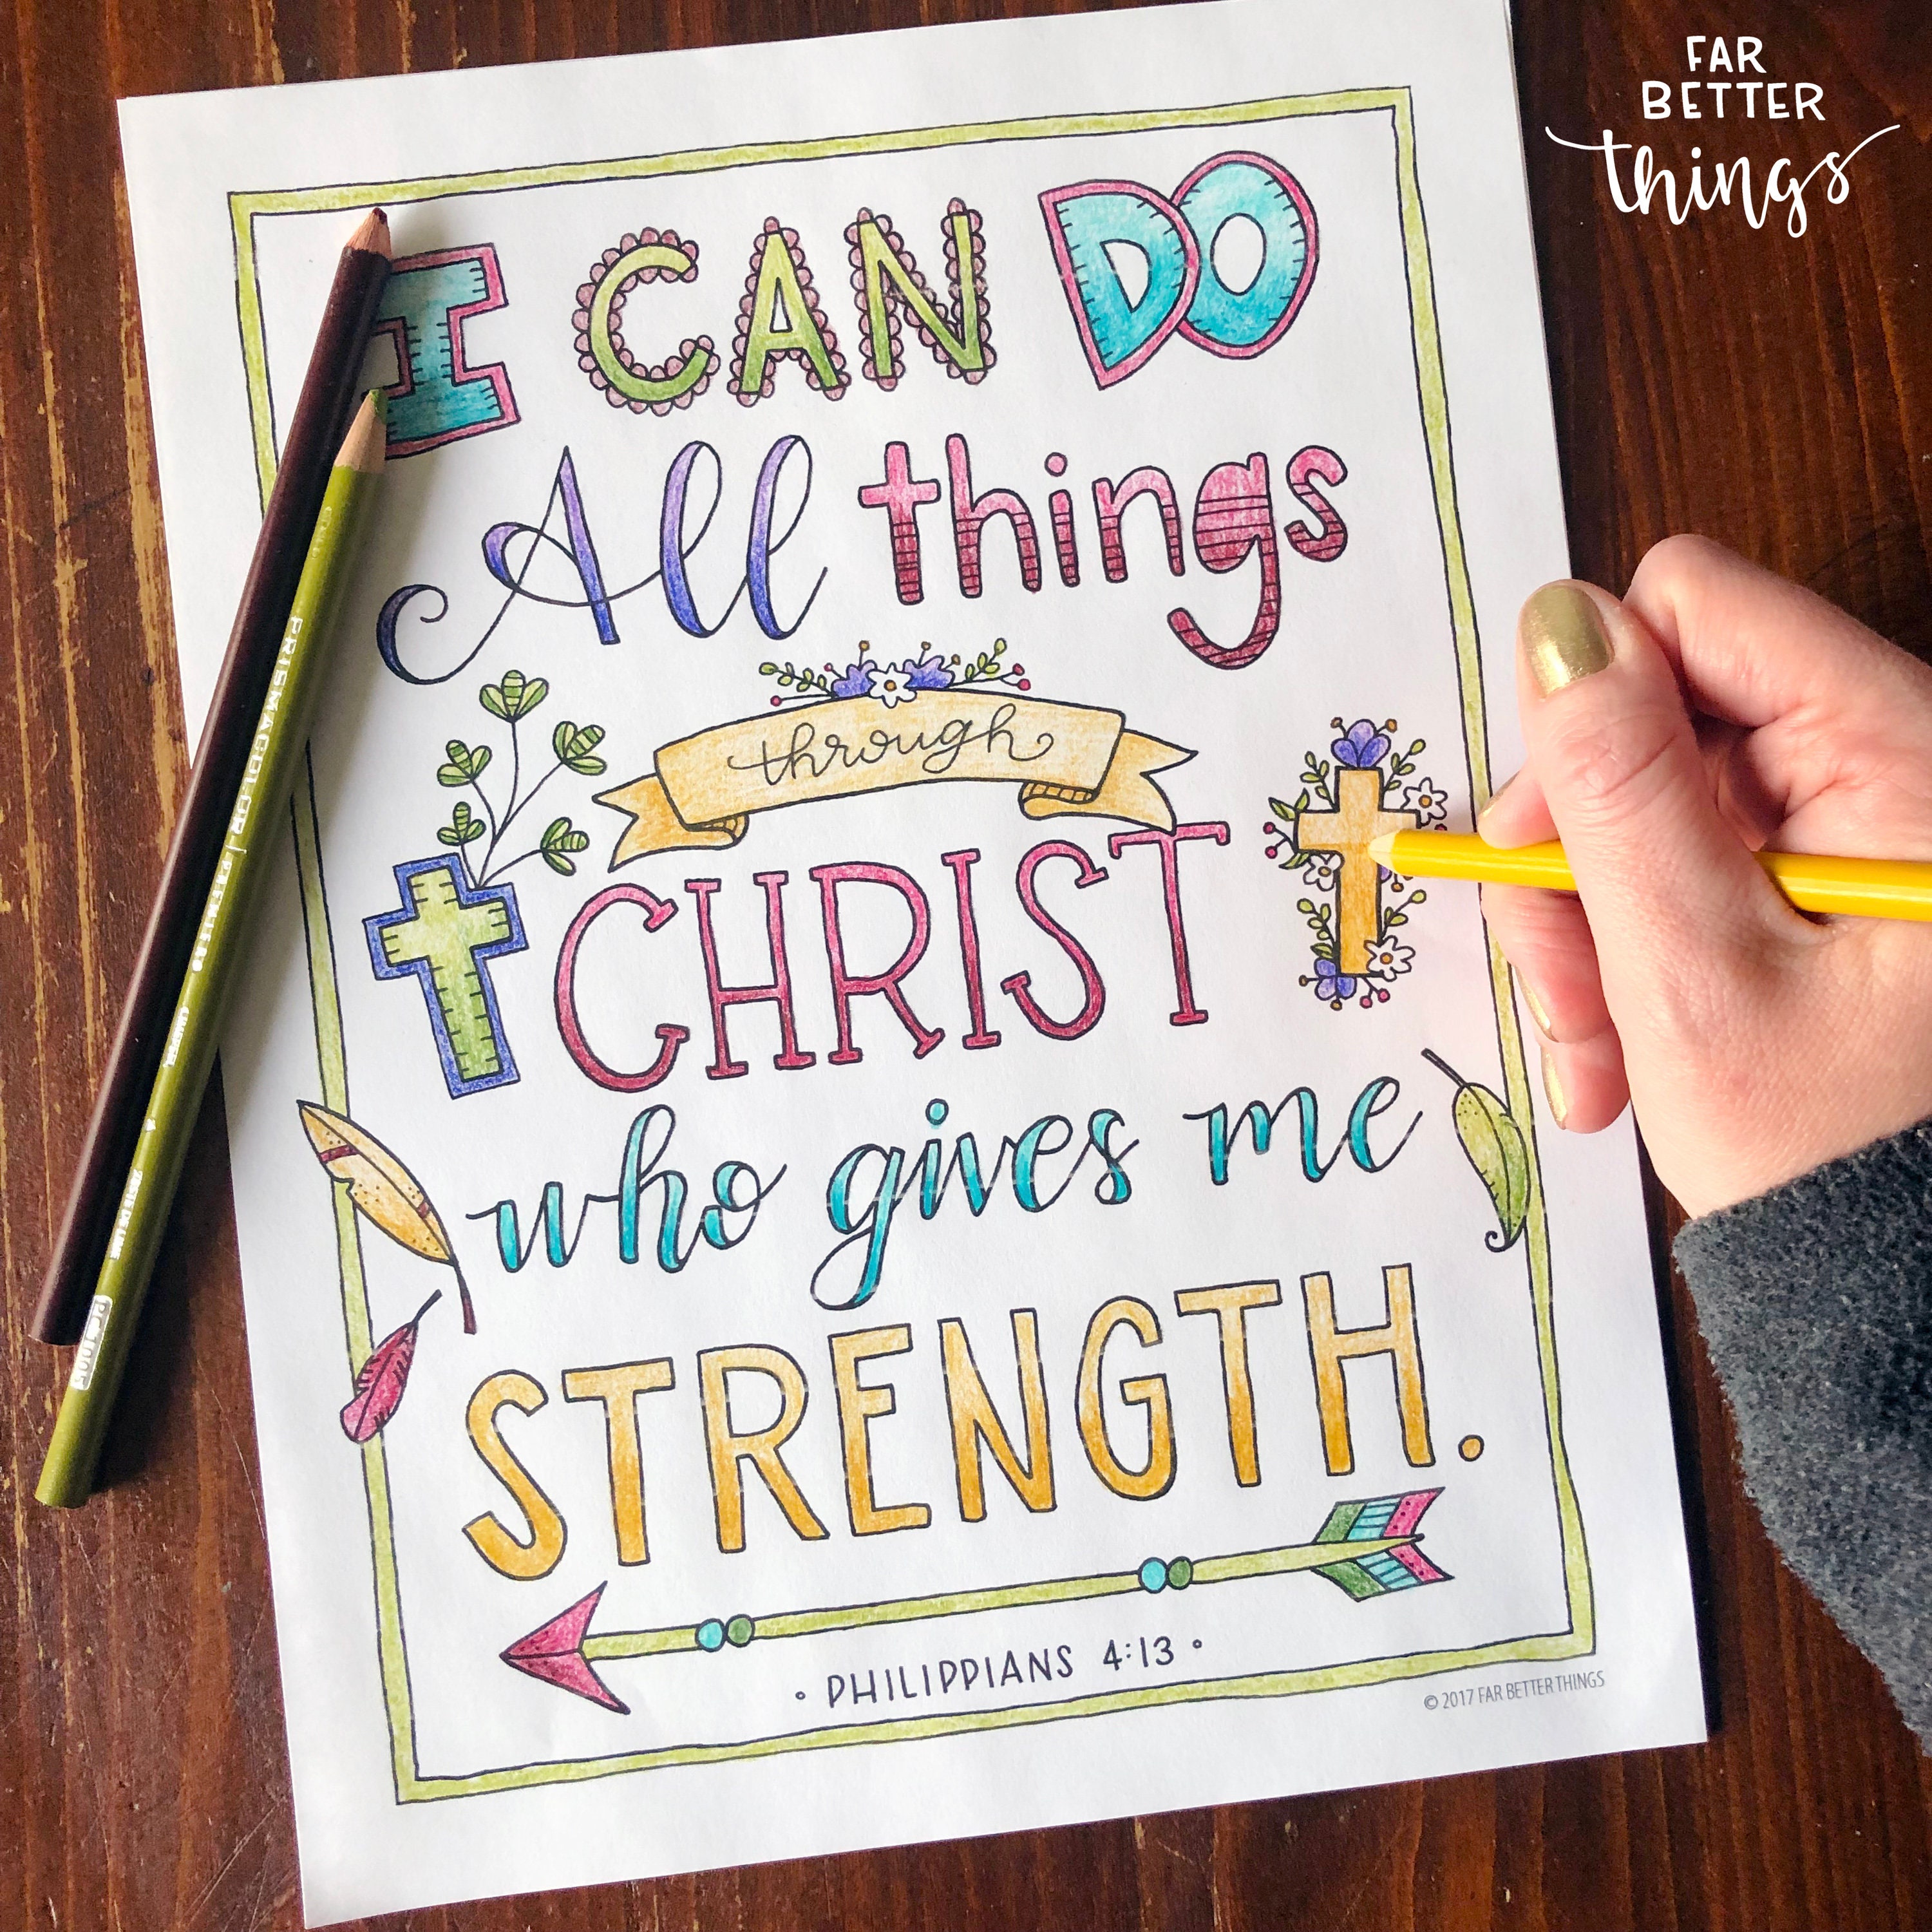 FAR
BETTER
things
I CAN DO
All things
through
CHRIST
who gives me
STRENGTH.
• PHILIPPIANS 4:13 •
© 2017 FAR BETTER THINGS
PRISMACOLOR